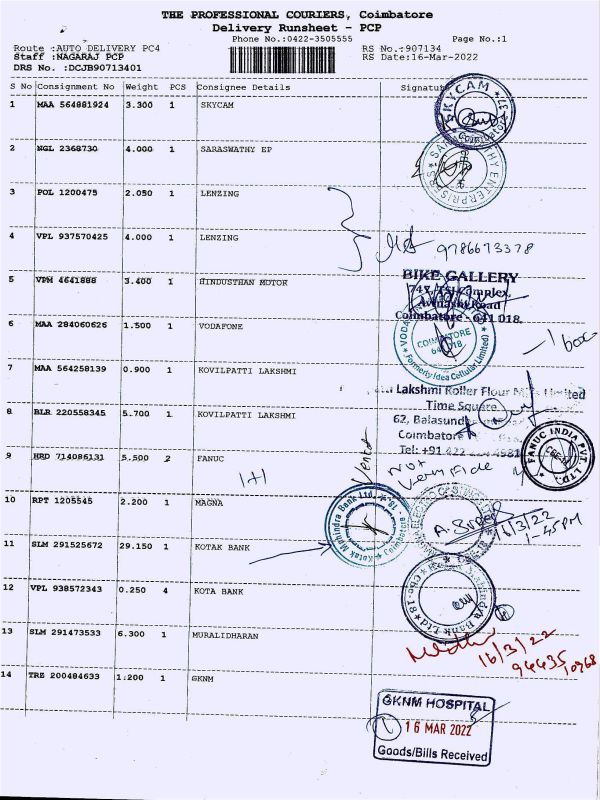 THE PROFESSIONAL COURIERS, Coimbatore
Delivery Runsheet - PCP
Phone No.:0422-3505555 Page No.:1
Route :AUTO DELIVERY PC4 RS No.:907134
Staff :NAGARAJ PCP RS Date:16-Mar-2022
DRS No. :DCJB90713401
S No Consignment No Weight PCS Consignee Details
1 MAA 564881924 3.300 1 SKYCAM
SKYCAM
2 NGL 2368730 4.000 1 SARASWATHY EP
3 POL 1200475 2.050 1 LENZING
4 VPL 937570425 4.000 1 LENZING
9786673378
5 VPM 4641888 3.400 1 HINDUSTHAN MOTOR
BIKE GALLERY
Coimbatore - 641 018.
6 MAA 284060626 1.500 1 VODAFONE
COIMBATORE
(Formerly Idea Cellular Limited)
7 MAA 564258139 0.900 1 KOVILPATTI LAKSHMI
Lakshmi Roller Flour Mills Limited
Time Square
8 BLR 220558345 5.700 1 KOVILPATTI LAKSHMI
62, Balasund
Coimbatore
Tel: +91 422
9 HRD 714086131 5.500 2 FANUC
FANUC INDIA PVT. LTD.
1+1
Not
Verifide
10 RPT 1205545 2.200 1 MAGNA
16/3/22
1-45PM
11 SLM 291525672 29.150 1 KOTAK BANK
Kotak Mahindra Bank Ltd.
12 VPL 938572343 0.250 4 KOTA BANK
13 SLM 291473533 6.300 1 MURALIDHARAN
16/3/22
94435
10768
14 TRZ 200484633 1.200 1 GKNM
GKNM HOSPITAL
16 MAR 2022
Goods/Bills Received